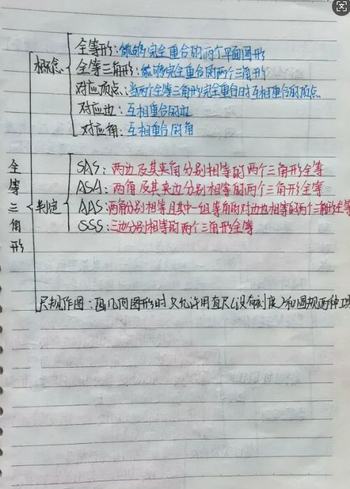 全等形：能够完全重合的两个平面图形
概念
全等三角形：能够完全重合的两个三角形
对应顶点：当两个全等三角形完全重合时互相重合的顶点
对应边：互相重合的边
对应角：互相重合的角
全等三角形
SAS：两边及其夹角分别相等的两个三角形全等
ASA：两角及其夹边分别相等的两个三角形全等
判定
AAS：两角分别相等且其中一组等角的对边也相等的两个三角形全等
SSS：三边分别相等的两个三角形全等
尺规作图：画几何图形时只允许用直尺(没有刻度)和圆规两种工